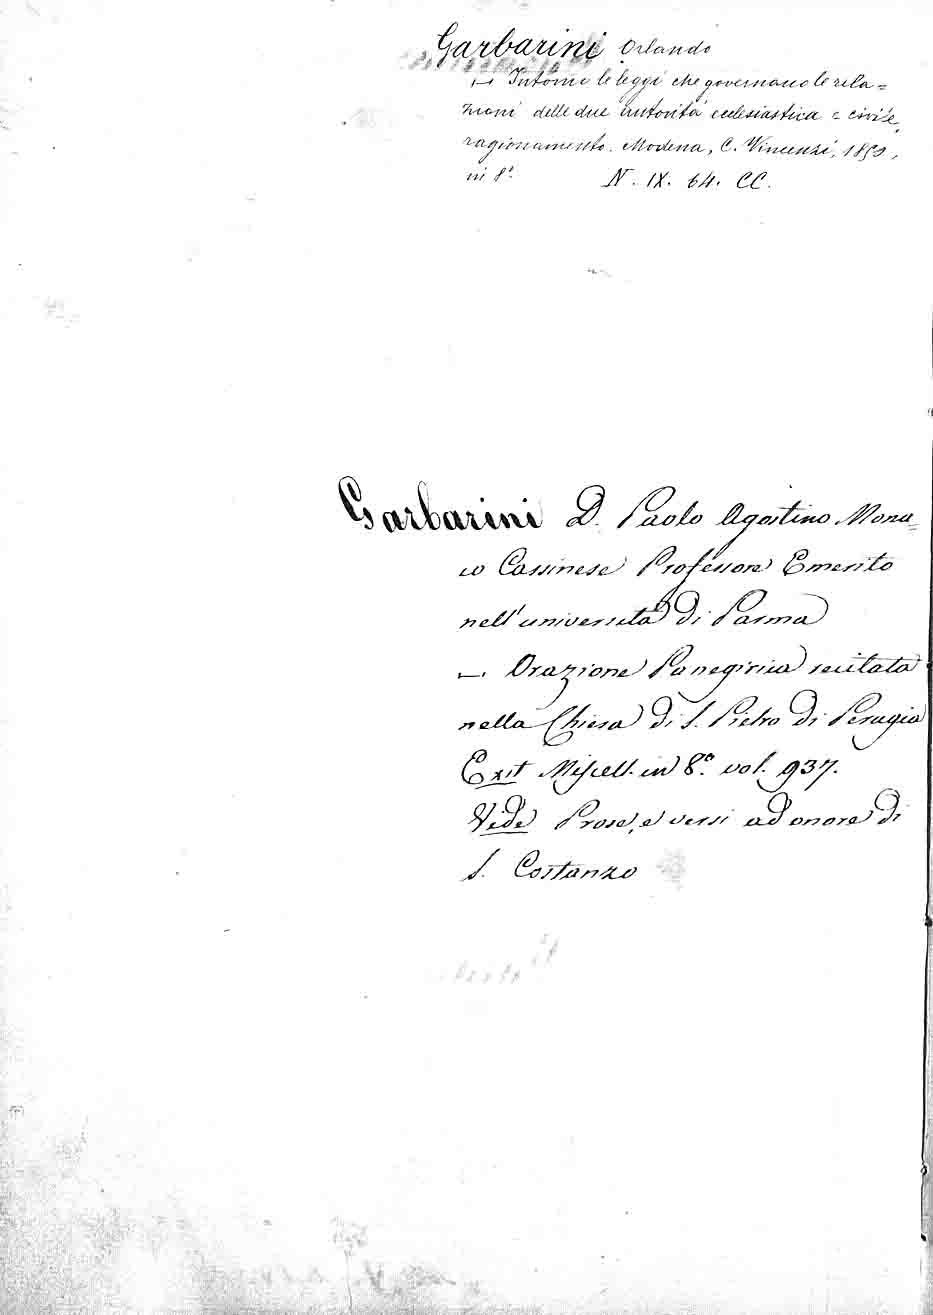 Garbarini Orlando
— Intorno le leggi che governano le rela=
zioni delle due autorità ecclesiastica e civile,
ragionamento. Modena, C. Vincenzi, 1859,
in 8°. N. IX. 64. CC.
Garbarini D. Paolo Agostino Mona=
co Cassinese Professore Emerito
nell'università di Parma
—. Orazione Panegirica recitata
nella Chiesa di S. Pietro di Perugia
Exit Miscell. in 8.° vol. 937.
Vide Prose, e versi ad onore di
S. Costanzo